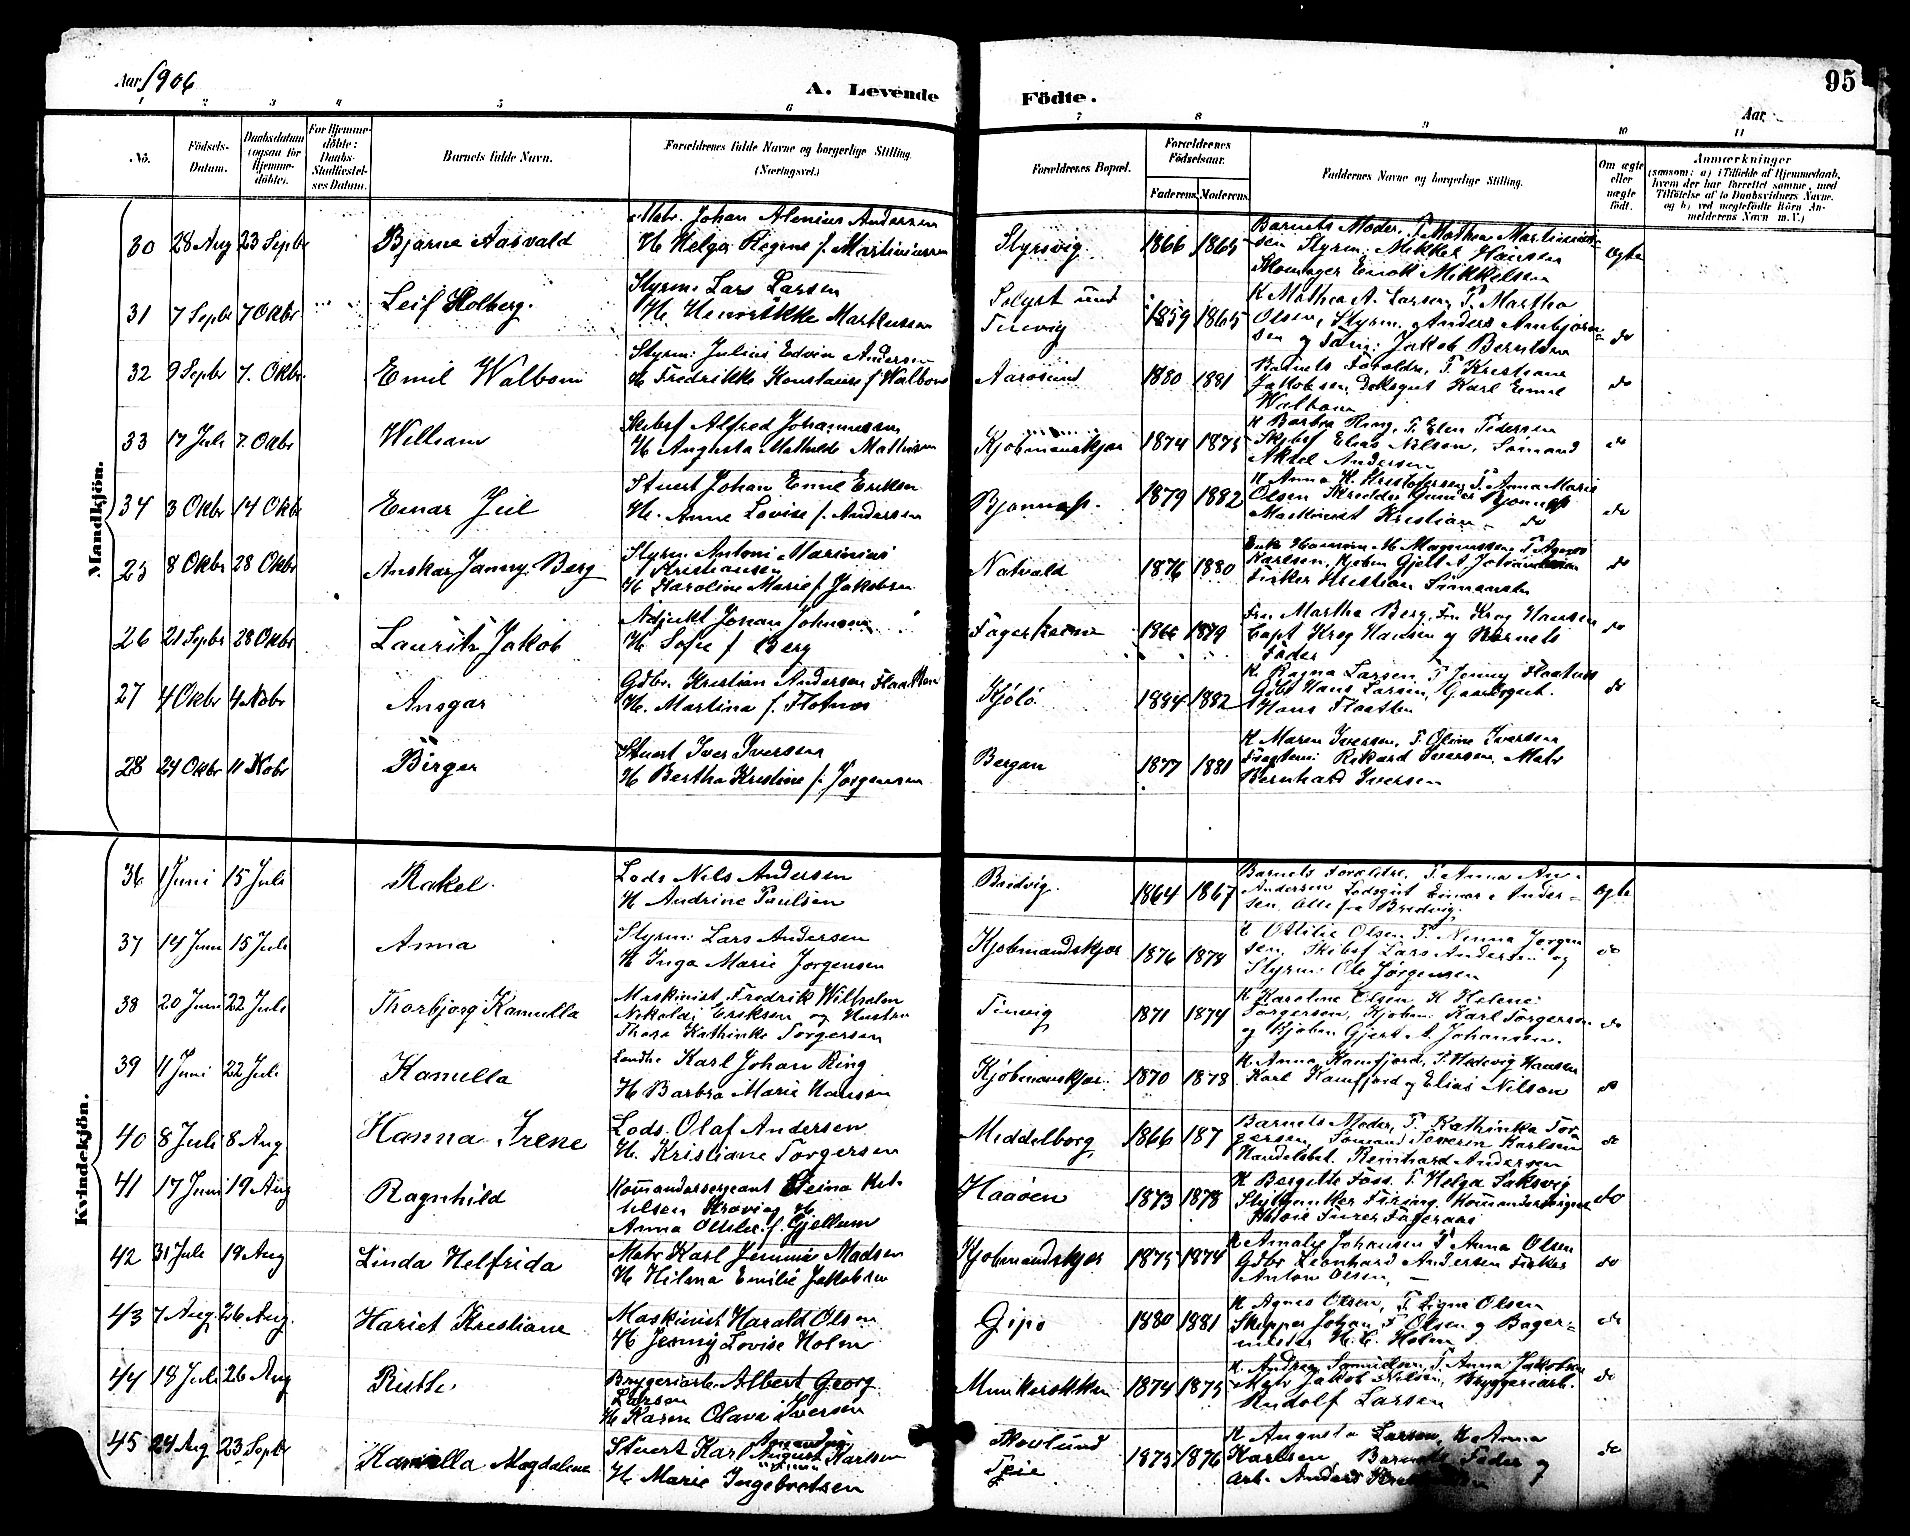 Aar 1906 A. Levende Födte. Aar 95
1 2 3 4 5 6 7 8 9 10 11
No. Födsels-Datum. Daabsdatum (ogsaa for Hjemme-döbte). For Hjemme-döbte: Daabs-Stadfæstel-ses Datum. Barnets fulde Navn. Forældrenes fulde Navne og borgerlige Stilling. (Næringsvei.) Forældrenes Bopæl. Forældrenes Födselsaar. Faderens. Moderens. Faddernes Navne og borgerlige Stilling. Om ægte eller uægte födt. Anmærkninger
(saasom: a) i Tilfælde af Hjemmedaab,
hvem der har forrettet samme, med
Tilföielse af to Daabsvidners Navne.
og b) ved uægtefödte Börn An-
melderens Navn m. V.)
Mandkjön.
30 28 Aug 23 Septbr Bjarne Aasvald Matr. Johan Alenius Andersen
H Helga Regine f. Martiniussen Styrsvig 1866 1865 Barnets Moder, P. Mathea Martinius-
sen Styrm. Mikkel Hansen
Skomager Enok Mikkelsen ægte
31 7 Septbr 7 Oktbr Leif Holberg. Styrm: Lars Larsen
H. Henrikke Markussen Solyst
Tenvig 1859 1865 K Mathea A. Larsen, P. Martha
Olsen, Styrm. Anders Anbjørn-
sen og Søm: Jakob Berntsen do
32 9 Septbr 7. Oktbr. Emil Walbom Styrm: Julius Edvin Andersen
H Fredrikke Konstanse f Walbom Aarøsund 1880 1881 Barnets Forældre, P Kristiane
Jakobsen, Dæksgut Karl Emil
Walbom do
33 17 Juli 7. Oktbr William Skibsf Alfred Johannessen
H Augusta Mathilde Mathisen Kjøbmanskjær 1874 1875 K Barbra Ring, P. Elen Pedersen
Skibsf Elias Nilsen, Sømand
Aksel Andersen do
34 3 Oktbr 14 Oktbr Einar Juil Stuert Johan Emil Eriksen
H. Anne Lovise f. Andersen Bjønnes. 1879 1882 K Anna K. Kristofersen P. Anna Marie
Olsen Skrædder Gunnar Bjønnes
Maskinist Kristian - do do
25 8 Oktbr 28 Oktbr Anskar Janny Berg Styrm. Antoni Marinius
Kristiansen
H Karoline Marie f. Jakobsen Natvald 1876 1880 Enke H. Magnussen P. Agnes
Karlsen, Kjøbm Gjett A. Johannessen
Fisker Kristian Simonsen do
26 21 Septbr 28 Oktbr Lauritz Jakob Adjukt Jonan Johnsen
H Sofie f Berg Fagerheim 1866 1879 Fru Martha Berg, Fru Krog Hansen
Capt Krog Hansen og Barnets
Fader do
27 4 Oktbr 4 Nobr Ansgar Gdbr. Kristian Andersen Flaatten
H. Martina f. Flotnes Kjølø 1884 1882 K. Ragna Larsen P Jenny Flaatnes
Gdbr Hans Larsen, Gaardsgut.
Hans Flaatten do
28 24 Oktbr 11 Nobr Birger Stuert Iver Iversen
H Bertha Kristine f. Jørgensen Bergan 1877 1881 K Maren Iversen, P. Oline Iversen
Rikard Iversen, Matr
Bernhard Iversen
Kvindekjön.
36 1 Juni 15 Juli Rakel. Lods Nils Andersen
H Andrine Paulsen Bredvig. 1864 1867 Barnets Forældre, P. Anna An-
Andersen Lodsgut Einar Ander-
sen alle fra Bredvig. ægte
37 14 Juni 15 Juli Anna Styrm: Lars Andersen
H Inga Marie Jørgensen Kjøbmandskjær 1876 1878 K Ottilie Olsen P. Ninna Jørgen
sen, Skibsf Lars Andersen og
Styrm: Ole Jørgensen do
38 20 Juni 22 Juli Thorbjørg Kamilla Maskinist Fredrik Wilhelm
Nikolai Eriksen og Hustru
Thora Kathinke Torgersen Tenvig 1871 1874 K Karoline Olsen, K Helene
Torgersen, Kjøbm Karl Torgersen
og Kjøbm Gjert A Johansen. do
39 11 Juni 22 Juli Kamilla Karl Johan Ring
H Barbra Marie Hansen Kjøbmanskjær. 1870 1878 K. Anna Kamfjord, P. Hedevig Hansen
Karl Kamfjord og Elias Nilsen do
40 8 Juli 8 Aug. Hanna Irene Lods. Olaf Andersen
H. Kristiane Torgersen Middelborg 1866 187 Barnets Moder, P. Kathinka Tor
gersen, Sømand Severin Karlsen
Handelsbet. Reinhard Andersen do
41 17 Juni 19 Aug Ragnhild Kommandersergeant
H
Anna Otilie f. Gjellum Haaøen 1873 1878 K Bergitte Foss. P. Helga Saksvig
Kommandersergeant
Fageraas do
42 31 Juli 19 Aug Linda Helfrida Matr Karl Jemmie Madsen
H Hilma Emilie Jakobsen Kjøbmandskjær 1875 1874 K Amalie Johansen P Anna Olsen
Gdbr Leonhard Andersen Fisker
Anton Olsen, — do
43 7 Aug. 26 Aug. Hariet Kristiane Maskinist Harald Olsen
H Jenny Lovise Holm Gipø 1880 1881 K Agnes Olsen, P. Signe Olsen
Skipper Johan F Olsen og Bager-
mester H. C. Holm do
44 18 Juli 26 Aug Ruth Bryggeriarb. Albert Georg
Larsen
H Karen Olava Iversen Munkerekken 1874 1875 K. Andrea Samuelsen, P. Anna Jakobsen
Matr Jakob Nilsen, Bryggeriarb.
Rudolf Larsen do
45 24 Aug 23 Septbr Kamilla Magdalene Stuert Karl August Karlsen
H Marie Ingebretsen Skovlund
Teie 1875 1876 K Augusta Larsen, K. Anna
Karlsen Barnets Fader og
arb. Anders do